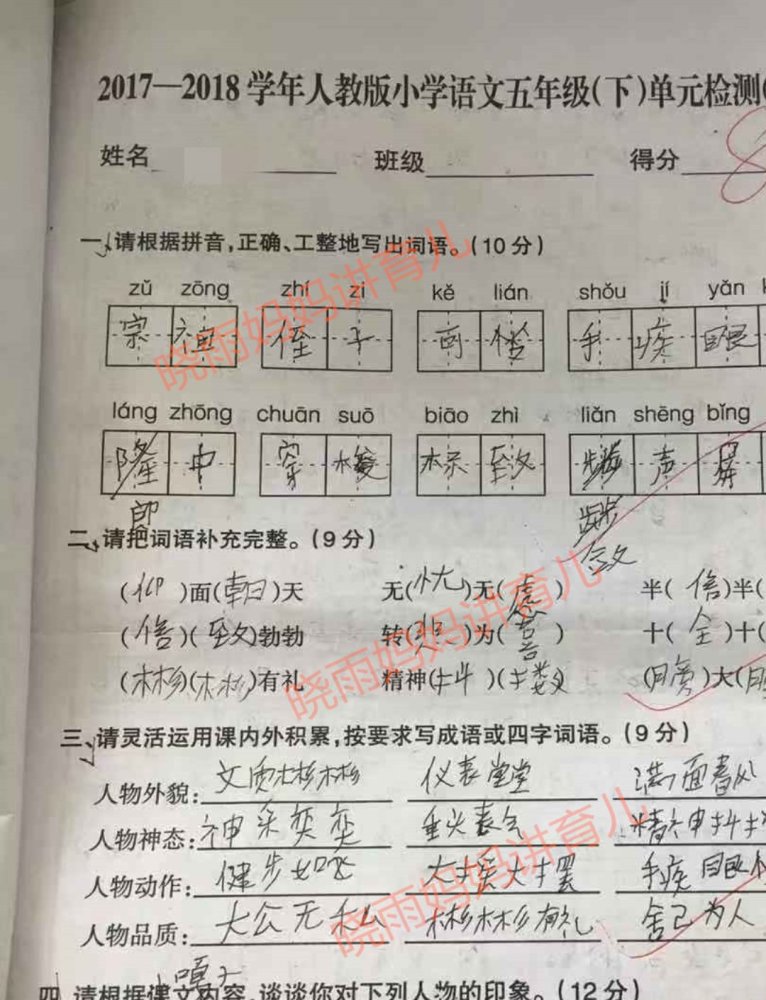 2017—2018学年人教版小学语文五年级(下)单元检测(
姓名 班级 得分
一、请根据拼音,正确、工整地写出词语。(10分)
zǔ zōng zhí zi kě lián shǒu jí yǎn
宗 祖 侄 子 可 怜 手 疾 眼
láng zhōng chuān suō biāo zhì liǎn shēng bǐng
中 穿 梭 标 致 声 屏
郎
敛
二、请把词语补充完整。(9分)
(仰)面(朝)天 无(忧)无(虑) 半(信)半(
(信)(致)勃勃 转(悲)为(喜) 十(全)十(
(彬)(彬)有礼 精神(抖)(擞) (膀)大(
三、请灵活运用课内外积累,按要求写成语或四字词语。(9分)
人物外貌: 文质彬彬 仪表堂堂 满面春风
人物神态: 神采奕奕 精神抖
人物动作: 健步如飞 大摇大摆 手疾眼
人物品质: 大公无私 彬彬有礼 舍己为人
四、请根据课文内容,谈谈你对下列人物的印象。(12分)
晓雨妈妈讲育儿
晓雨妈妈讲育儿
晓雨妈妈讲育儿